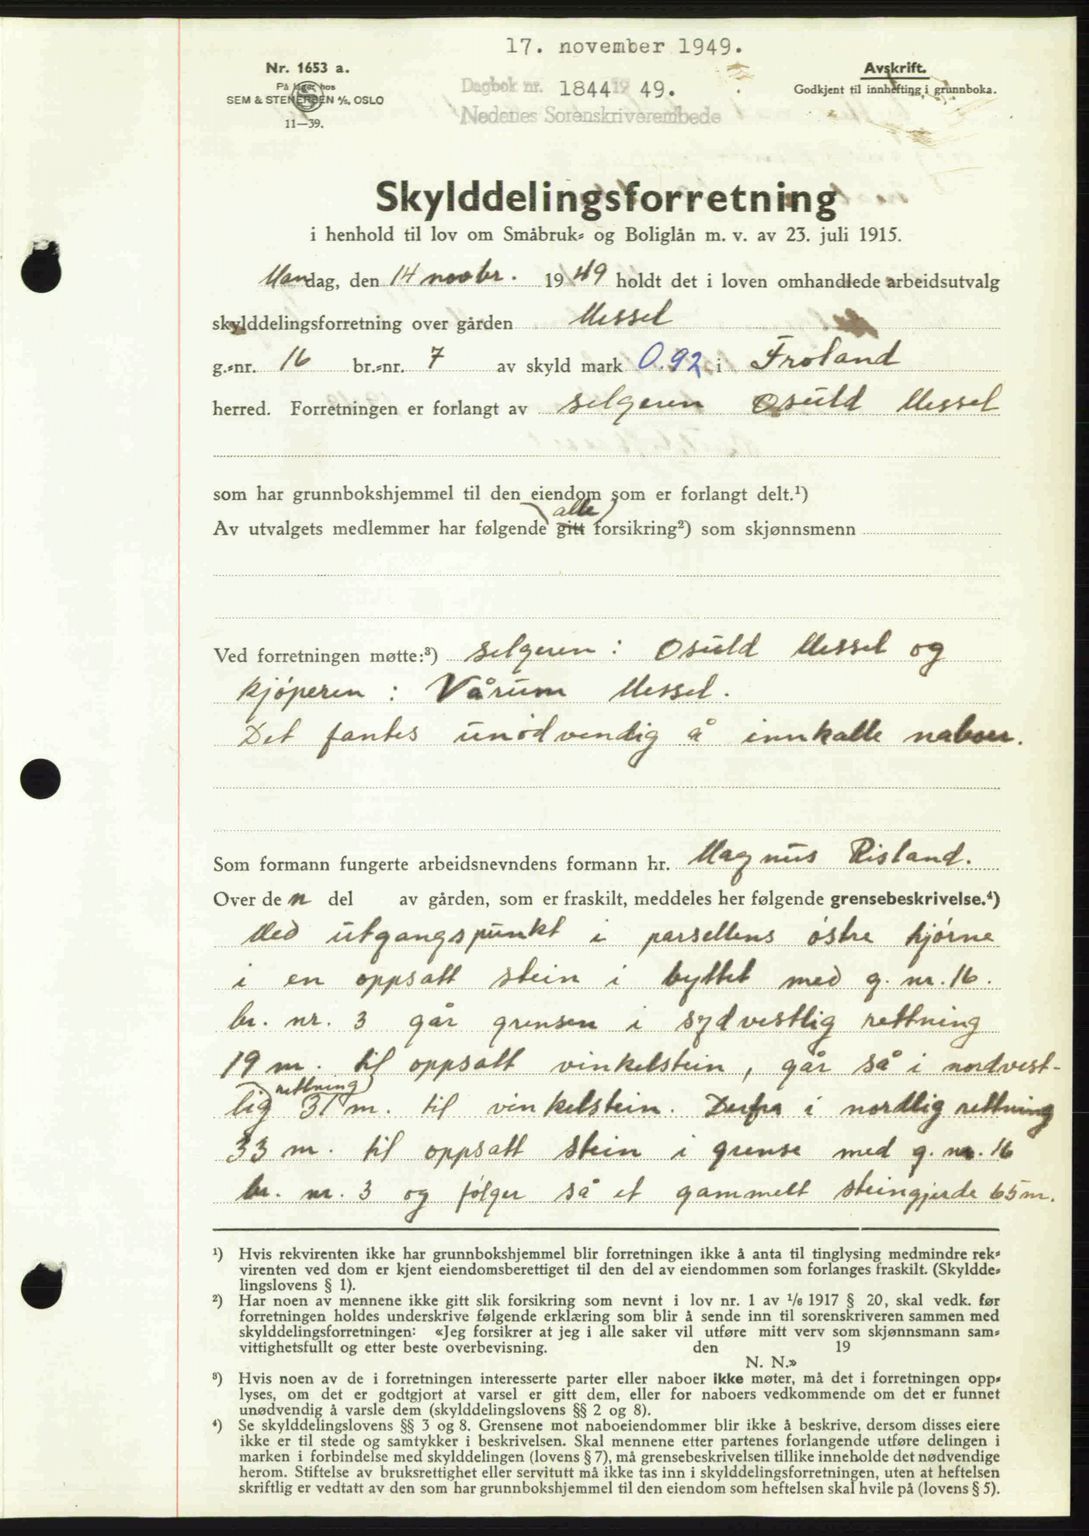 17. november 1949.
Nr. 1653 a.
På lager hos
SEM & STENERSEN A/S, OSLO
11—39.
Dagbok nr. 1844 19 49.
Nedenes Sorenskriverembede
Avskrift.
Godkjent til innhefting i grunnboka.
Skylddelingsforretning
i henhold til lov om Småbruk- og Boliglån m. v. av 23. juli 1915.
Mandag, den 14 novbr. 1949 holdt det i loven omhandlede arbeidsutvalg
skylddelingsforretning over gården Messel
g.-nr. 16 br.-nr. 7 av skyld mark 0.92 i Froland
herred. Forretningen er forlangt av selgeren Osuld Messel
som har grunnbokshjemmel til den eiendom som er forlangt delt.¹)
alle
Av utvalgets medlemmer har følgende gitt forsikring²) som skjønnsmenn
Ved forretningen møtte:³) selgeren : Osuld Messel og
kjøperen : Vårum Messel.
Det fantes unødvendig å innkalle naboer.
Som formann fungerte arbeidsnevndens formann hr. Magnus Risland.
Over den del av gården, som er fraskilt, meddeles her følgende grensebeskrivelse.⁴)
Med utgangspunkt i parsellens østre hjørne
i en oppsatt stein i byttet med g. nr. 16.
br. nr. 3 går grensen i sydvestlig rettning
19 m. til oppsatt vinkelstein, går så i nordvest-
rettning
lig 31 m. til vinkelstein. Derfra i nordlig rettning
33 m. til oppsatt stein i grense med g. nr. 16
br. nr. 3 og følger så et gammelt steingjerde 65 m.
¹) Hvis rekvirenten ikke har grunnbokshjemmel blir forretningen ikke å anta til tinglysing medmindre rek-
virenten ved dom er kjent eiendomsberettiget til den del av eiendommen som forlanges fraskilt. (Skyldde-
lingslovens § 1).
²) Har noen av mennene ikke gitt slik forsikring som nevnt i lov nr. 1 av 1/6 1917 § 20, skal vedk. før
forretningen holdes underskrive følgende erklæring som blir å sende inn til sorenskriveren sammen med
skylddelingsforretningen: «Jeg forsikrer at jeg i alle saker vil utføre mitt verv som skjønnsmann sam-
vittighetsfullt og etter beste overbevisning. den 19
N. N.»
³) Hvis noen av de i forretningen interesserte parter eller naboer ikke møter, må det i forretningen opp-
lyses, om det er godtgjort at varsel er gitt dem, eller for naboers vedkommende om det er funnet
unødvendig å varsle dem (skylddelingslovens §§ 2 og 8).
⁴) Se skylddelingslovens §§ 3 og 8. Grensene mot naboeiendommer blir ikke å beskrive, dersom disses eiere
ikke er til stede og samtykker i beskrivelsen. Skal mennene etter partenes forlangende utføre delingen i
marken i forbindelse med skylddelingen (lovens § 7), må grensebeskrivelsen tillike inneholde det nødvendige
herom. Stiftelse av bruksrettighet eller servitutt må ikke tas inn i skylddelingsforretningen, uten at heftelsen
skriftlig er vedtatt av den som har grunnbokshjemmel til den eiendom som heftelsen skal hvile på (lovens § 5).